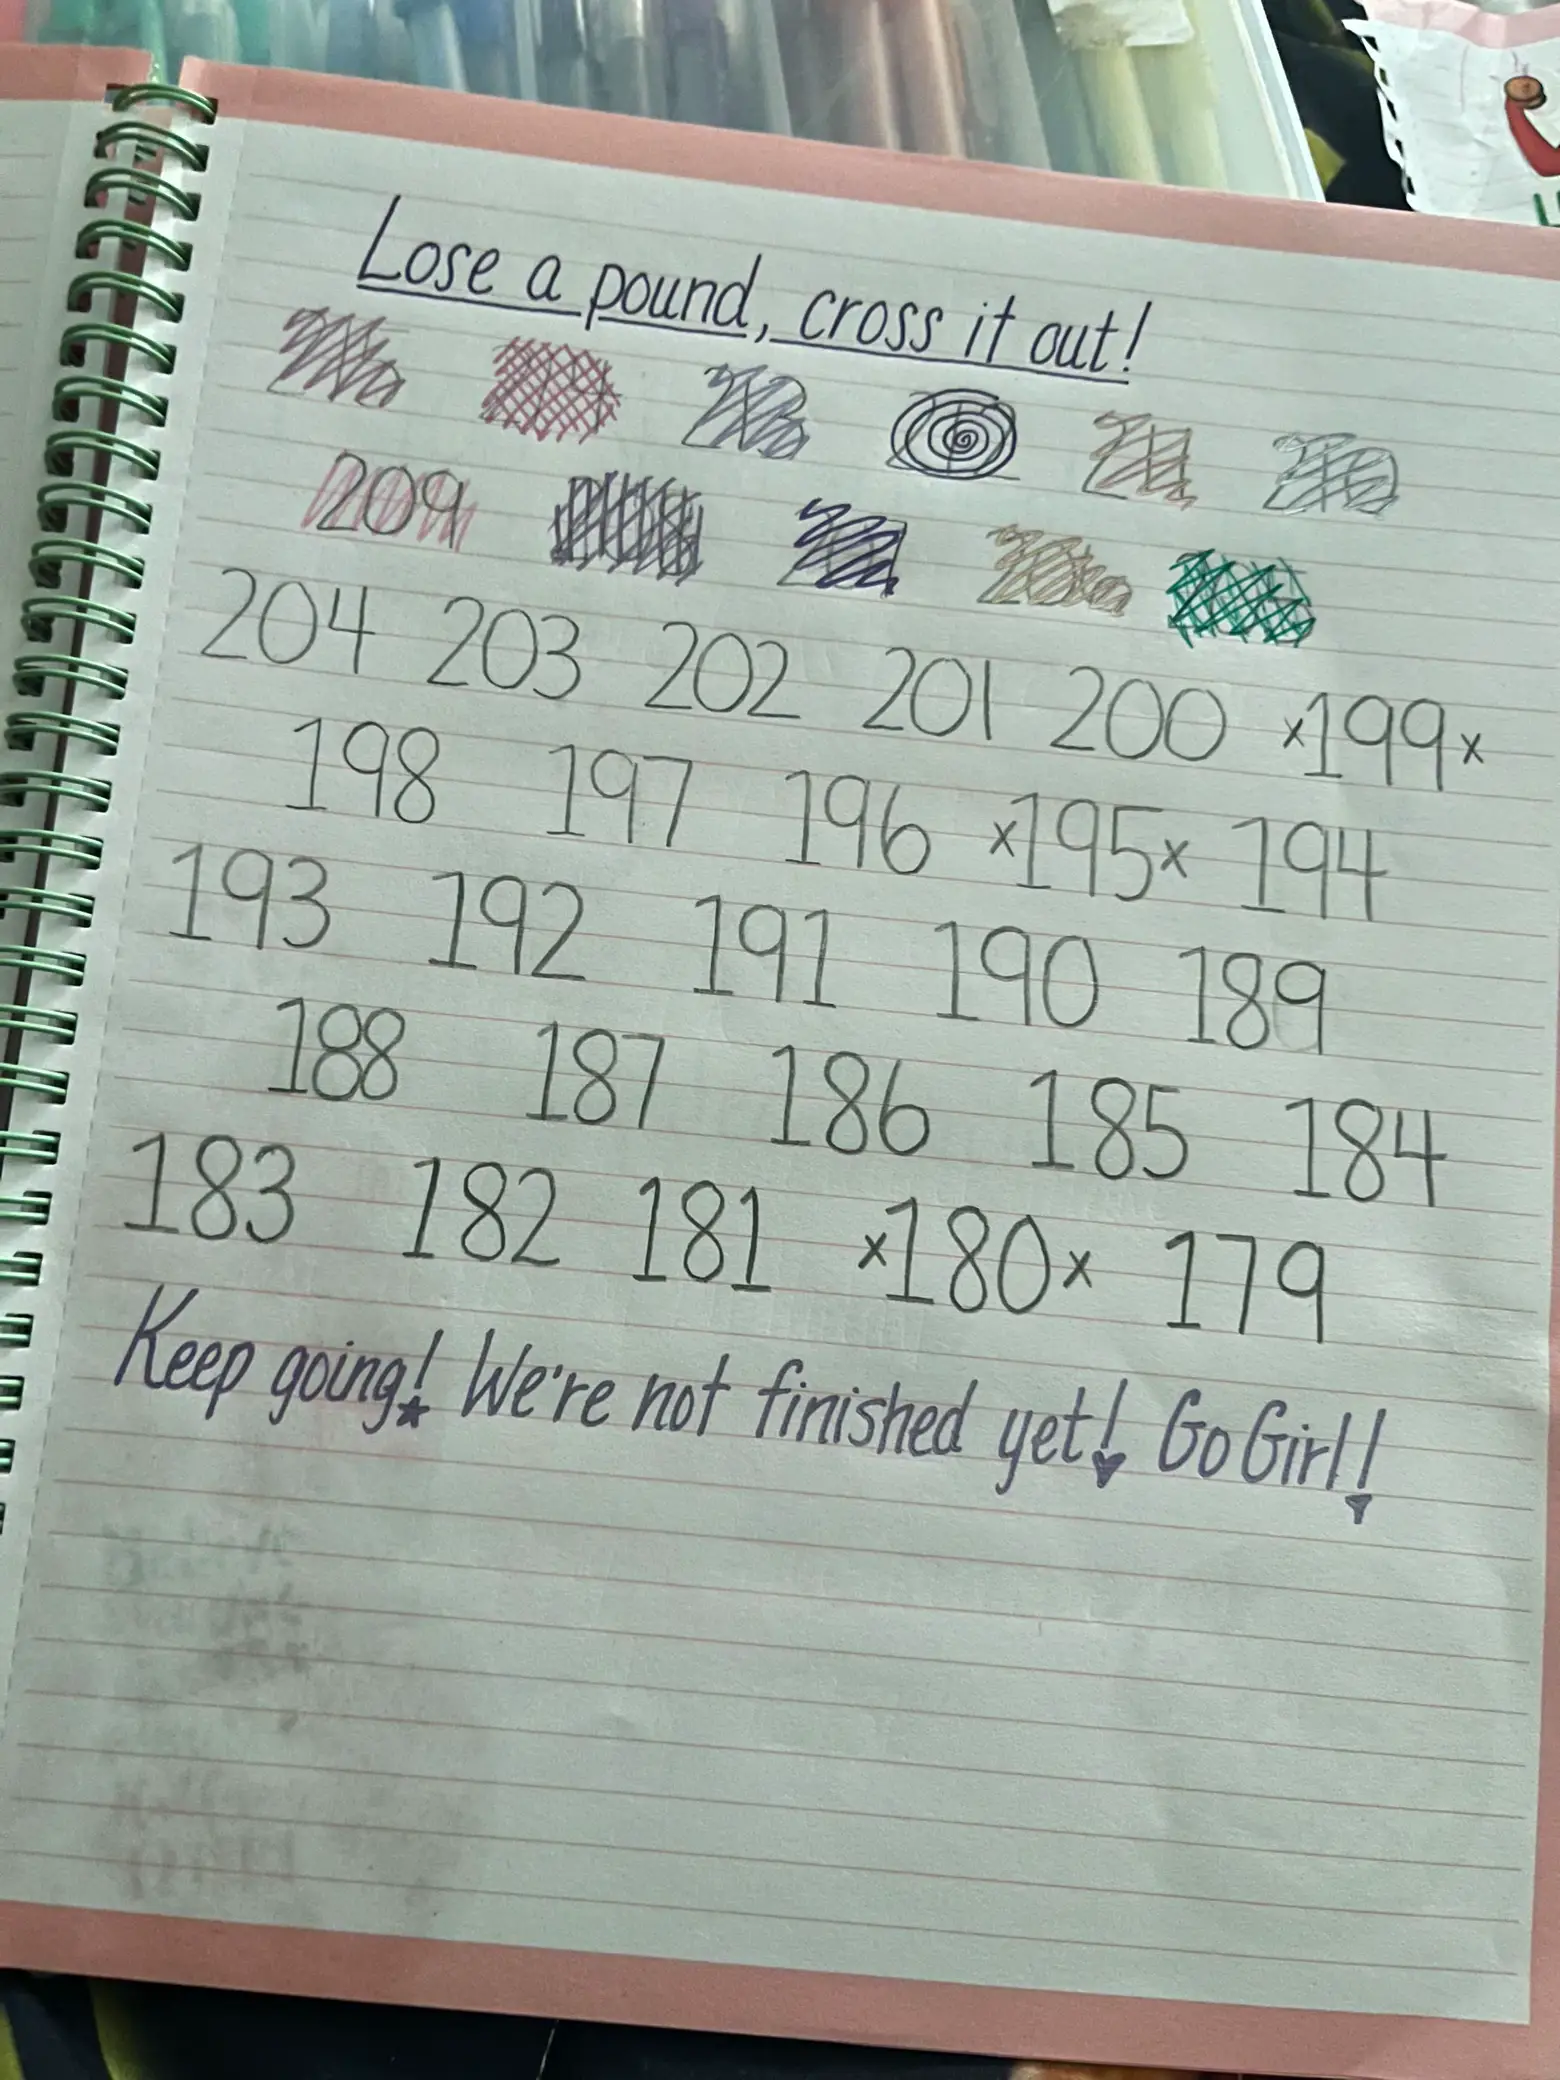 Lose a pound, cross it out!
209
204 203 202 201 200 ×199×
198 197 196 ×195× 194
193 192 191 190 189
188 187 186 185 184
183 182 181 ×180× 179
Keep going! We're not finished yet! Go Girl!